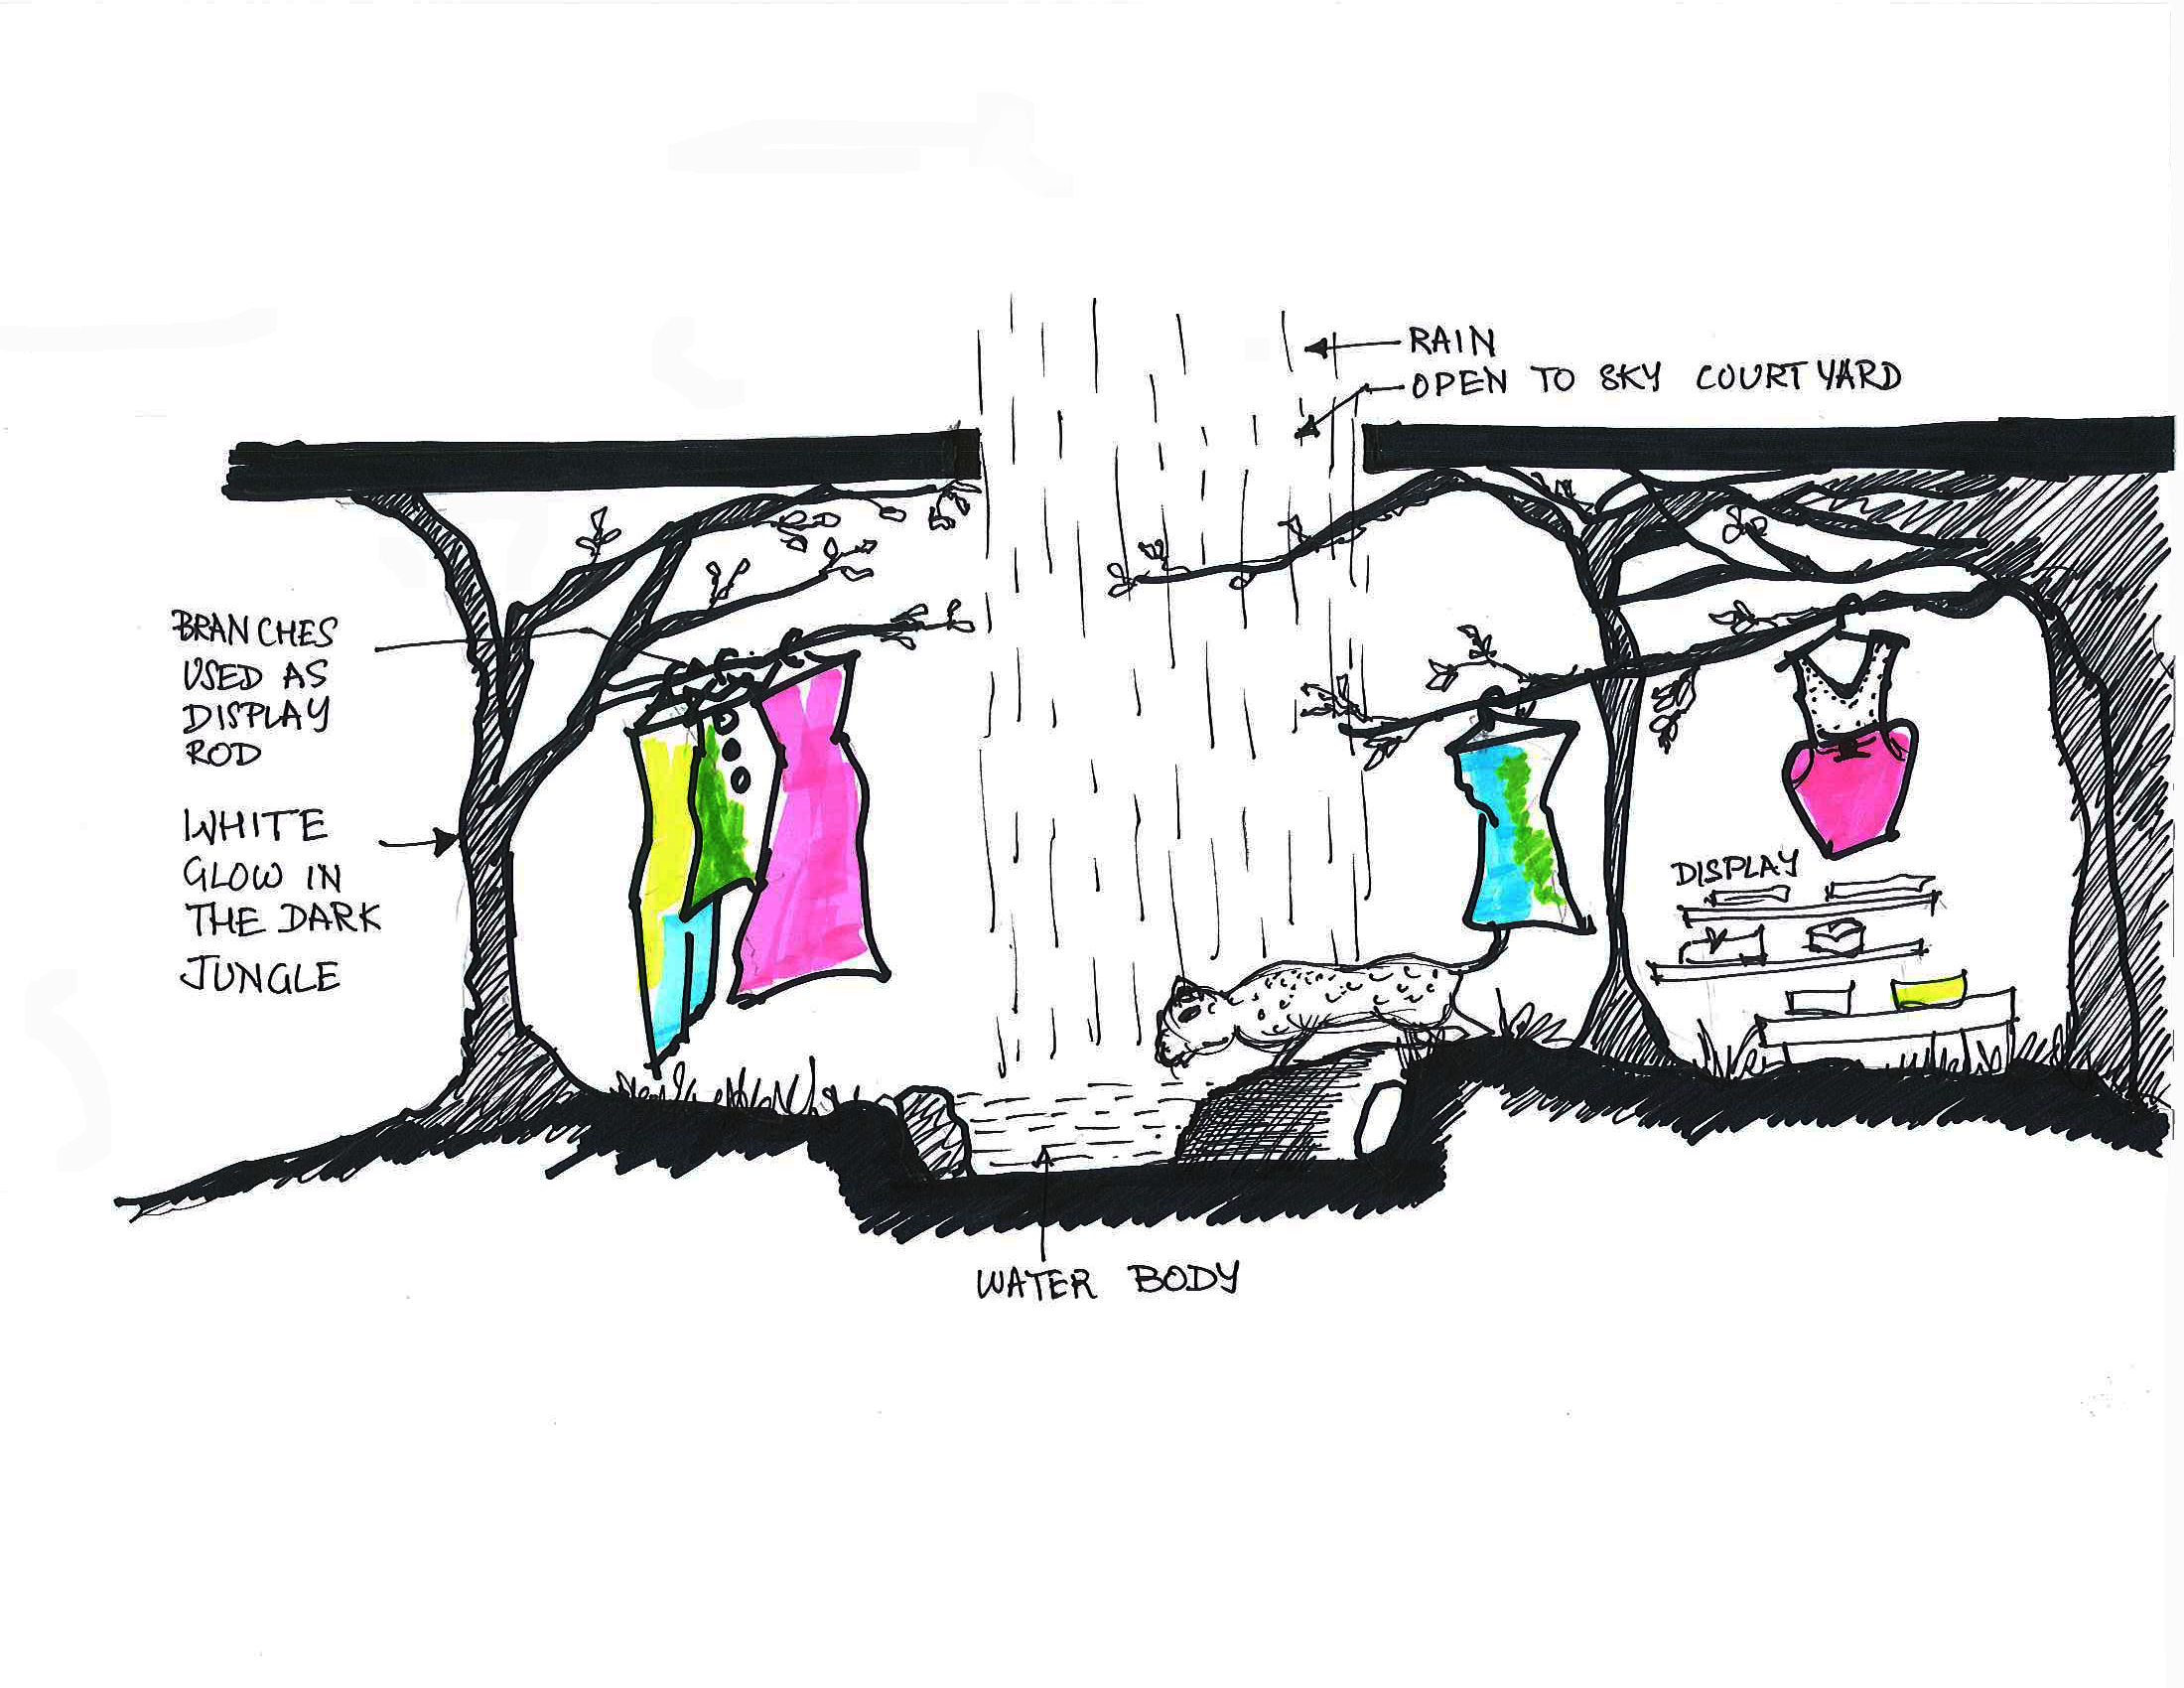 RAIN
OPEN TO SKY COURTYARD
BRANCHES
USED AS
DISPLAY
ROD
WHITE
GLOW IN
THE DARK
JUNGLE
DISPLAY
WATER BODY